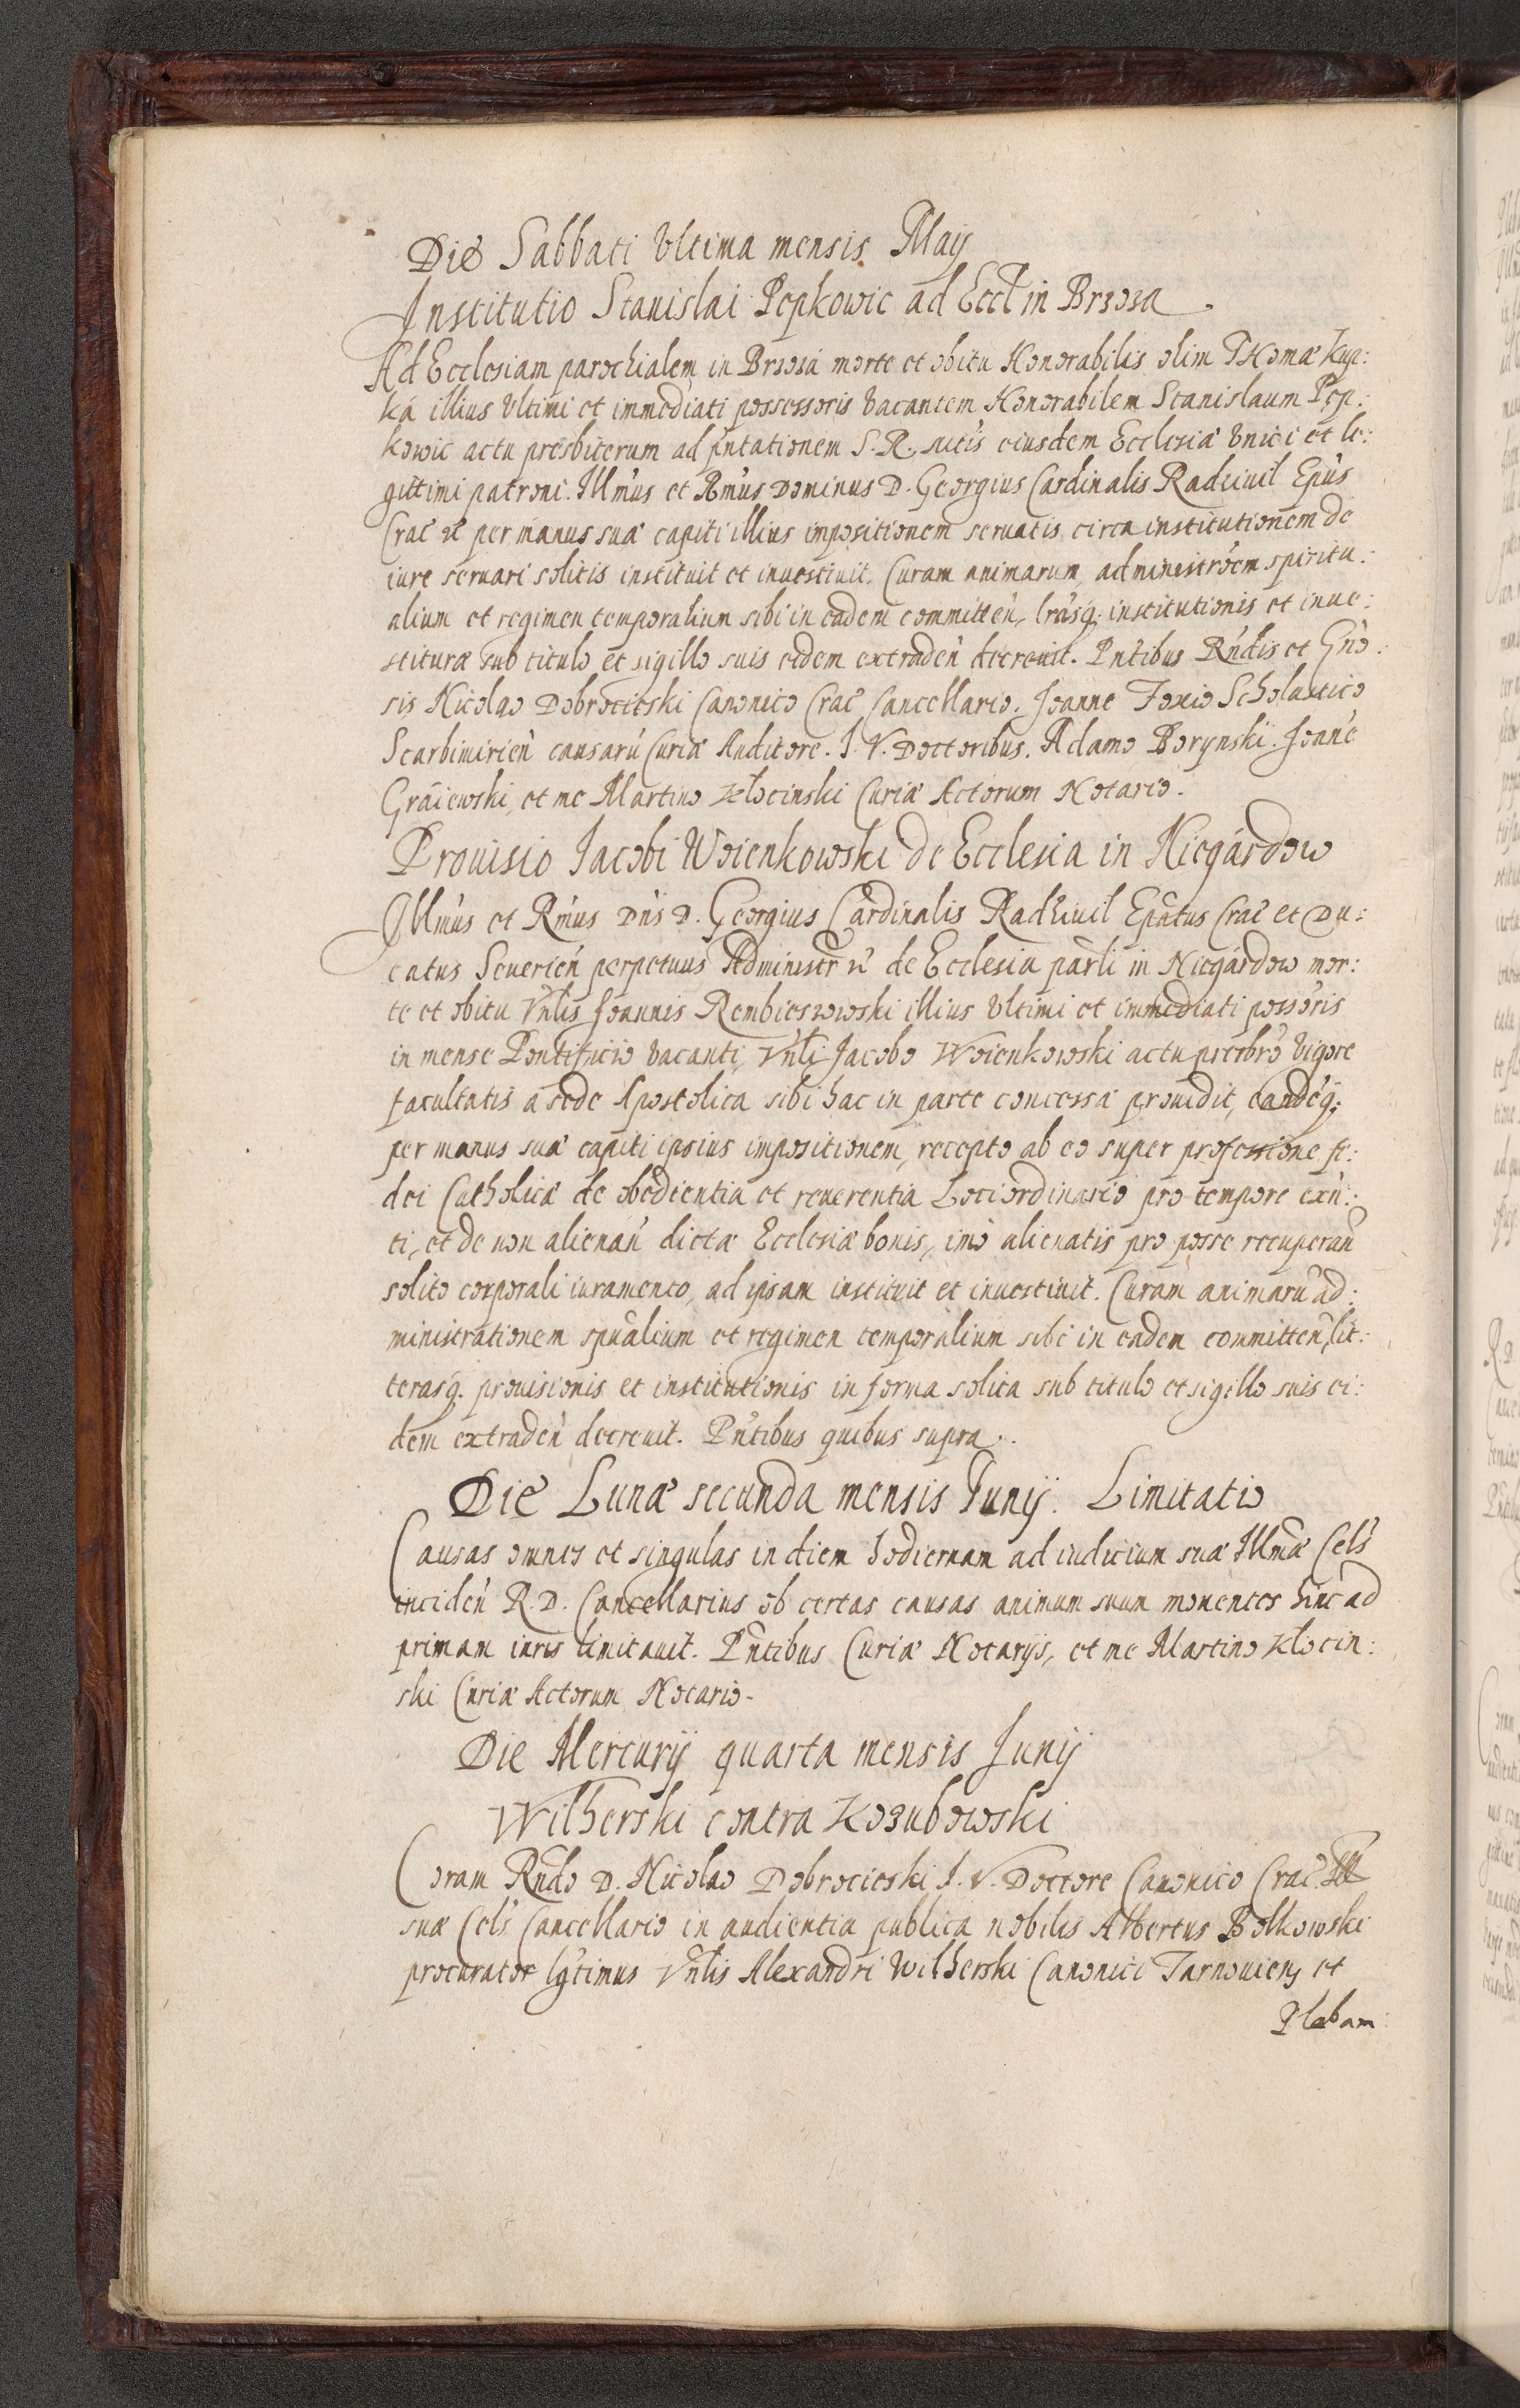 Die Sabbati Vltima mensis Maij
Institutio Stanislai Pepkowic ad Eccl in Brzoza
Ad Ecclesiam parochialem in Brzozá morte et obitu Honorabilis olim Thomæ Kup:
ká illius Vltimi et immediati possessoris vacantem Honorabilem Stanislaum Pep:
kowic actu presbiterum ad pntationem S. R. Mtis eiusdem Ecclesiæ Vnici et le:
gittimi patroni. Illmus et Rmus Dominus D. Georgius Cardinalis Radziuil Epus
Crac zc per manus suæ capiti illius impositionem seruatis circa institutionem de
iure seruari solitis instituit et inuestiuit. Curam animarum, administrôem spiritu:
alium et regimen temporalium sibi in eadem committeń, lrasq; institutionis et inue:
stituræ sub titulo et sigillo suis eidem extradeń decreuit. Pntibus Rndis et Gńo:
sis Nicolao Dobrocieski Canonico Crac Cancellario. Joanne Foxio Scholastico
Scarbimirień causarũ Curiæ Auditore. J. V. Doctoribus. Adamo Borynski. Joanne
Gráiewski, et me Martino Kłocinski Curiæ Actorum Notario.
Prouisio Jacobi Woienkowski de Ecclesia in Niegárdow
Illmus et Rmus Dńs D. Georgius Cardinalis Radziuil Epatus Crac et Du:
catus Seuerień perpetuus Administr zc de Ecclesia parli in Niegárdow mor:
te et obitu Vńlis Joannis Rembieszowski illius Vltimi et immediati possoris
in mense Pontificio vacanti, Vńli Jacobo Woienkowski actu presbro Vigore
facultatis a sede Apostolica sibi hac in parte concessæ prouidit, eandeq;
per manus suæ capiti ipsius impositionem, recepto ab eo super professione fi:
dei Catholicæ de obedientia et reuerentia Loci ordinario pro tempore exń:
ti, et de non alienań dictæ Ecclesiæ bonis, imò alienatis pro posse recuperań
solito corporali iuramento, ad ipsam instituit et inuestiuit. Curam animarũ ad:
ministrationem spualium et regimen temporalium sibi in eadem committeń, lit:
terasq. prouisionis et institutionis in forma solita sub titulo et sigillo suis ei:
dem extradeń decreuit. Pntibus quibus supra.
Die Lunæ secunda mensis Junij. Limitatio
Causas omnes et singulas in diem hodiernam ad iudicium suæ Illmæ Cels
incideń R. D. Cancellarius ob certas causas animum suum mouentes hinc ad
primam iuris limitauit. Pntibus Curiæ Notarijs, et me Martino Kłocin:
ski Curiæ Actorum Notario.
Die Mercurij quarta mensis Junij
Wilherski contra Kozubowski
Coram Rndo D. Nicolao Dobrocieski J. V. Doctore Canonico Crac
suæ Cels Cancellario in audientia publica nobilis Albertus Bolkowski
procurator lgtimus Vńlis Alexandri Wilherski Canonici Tarnouień, et
Plebam